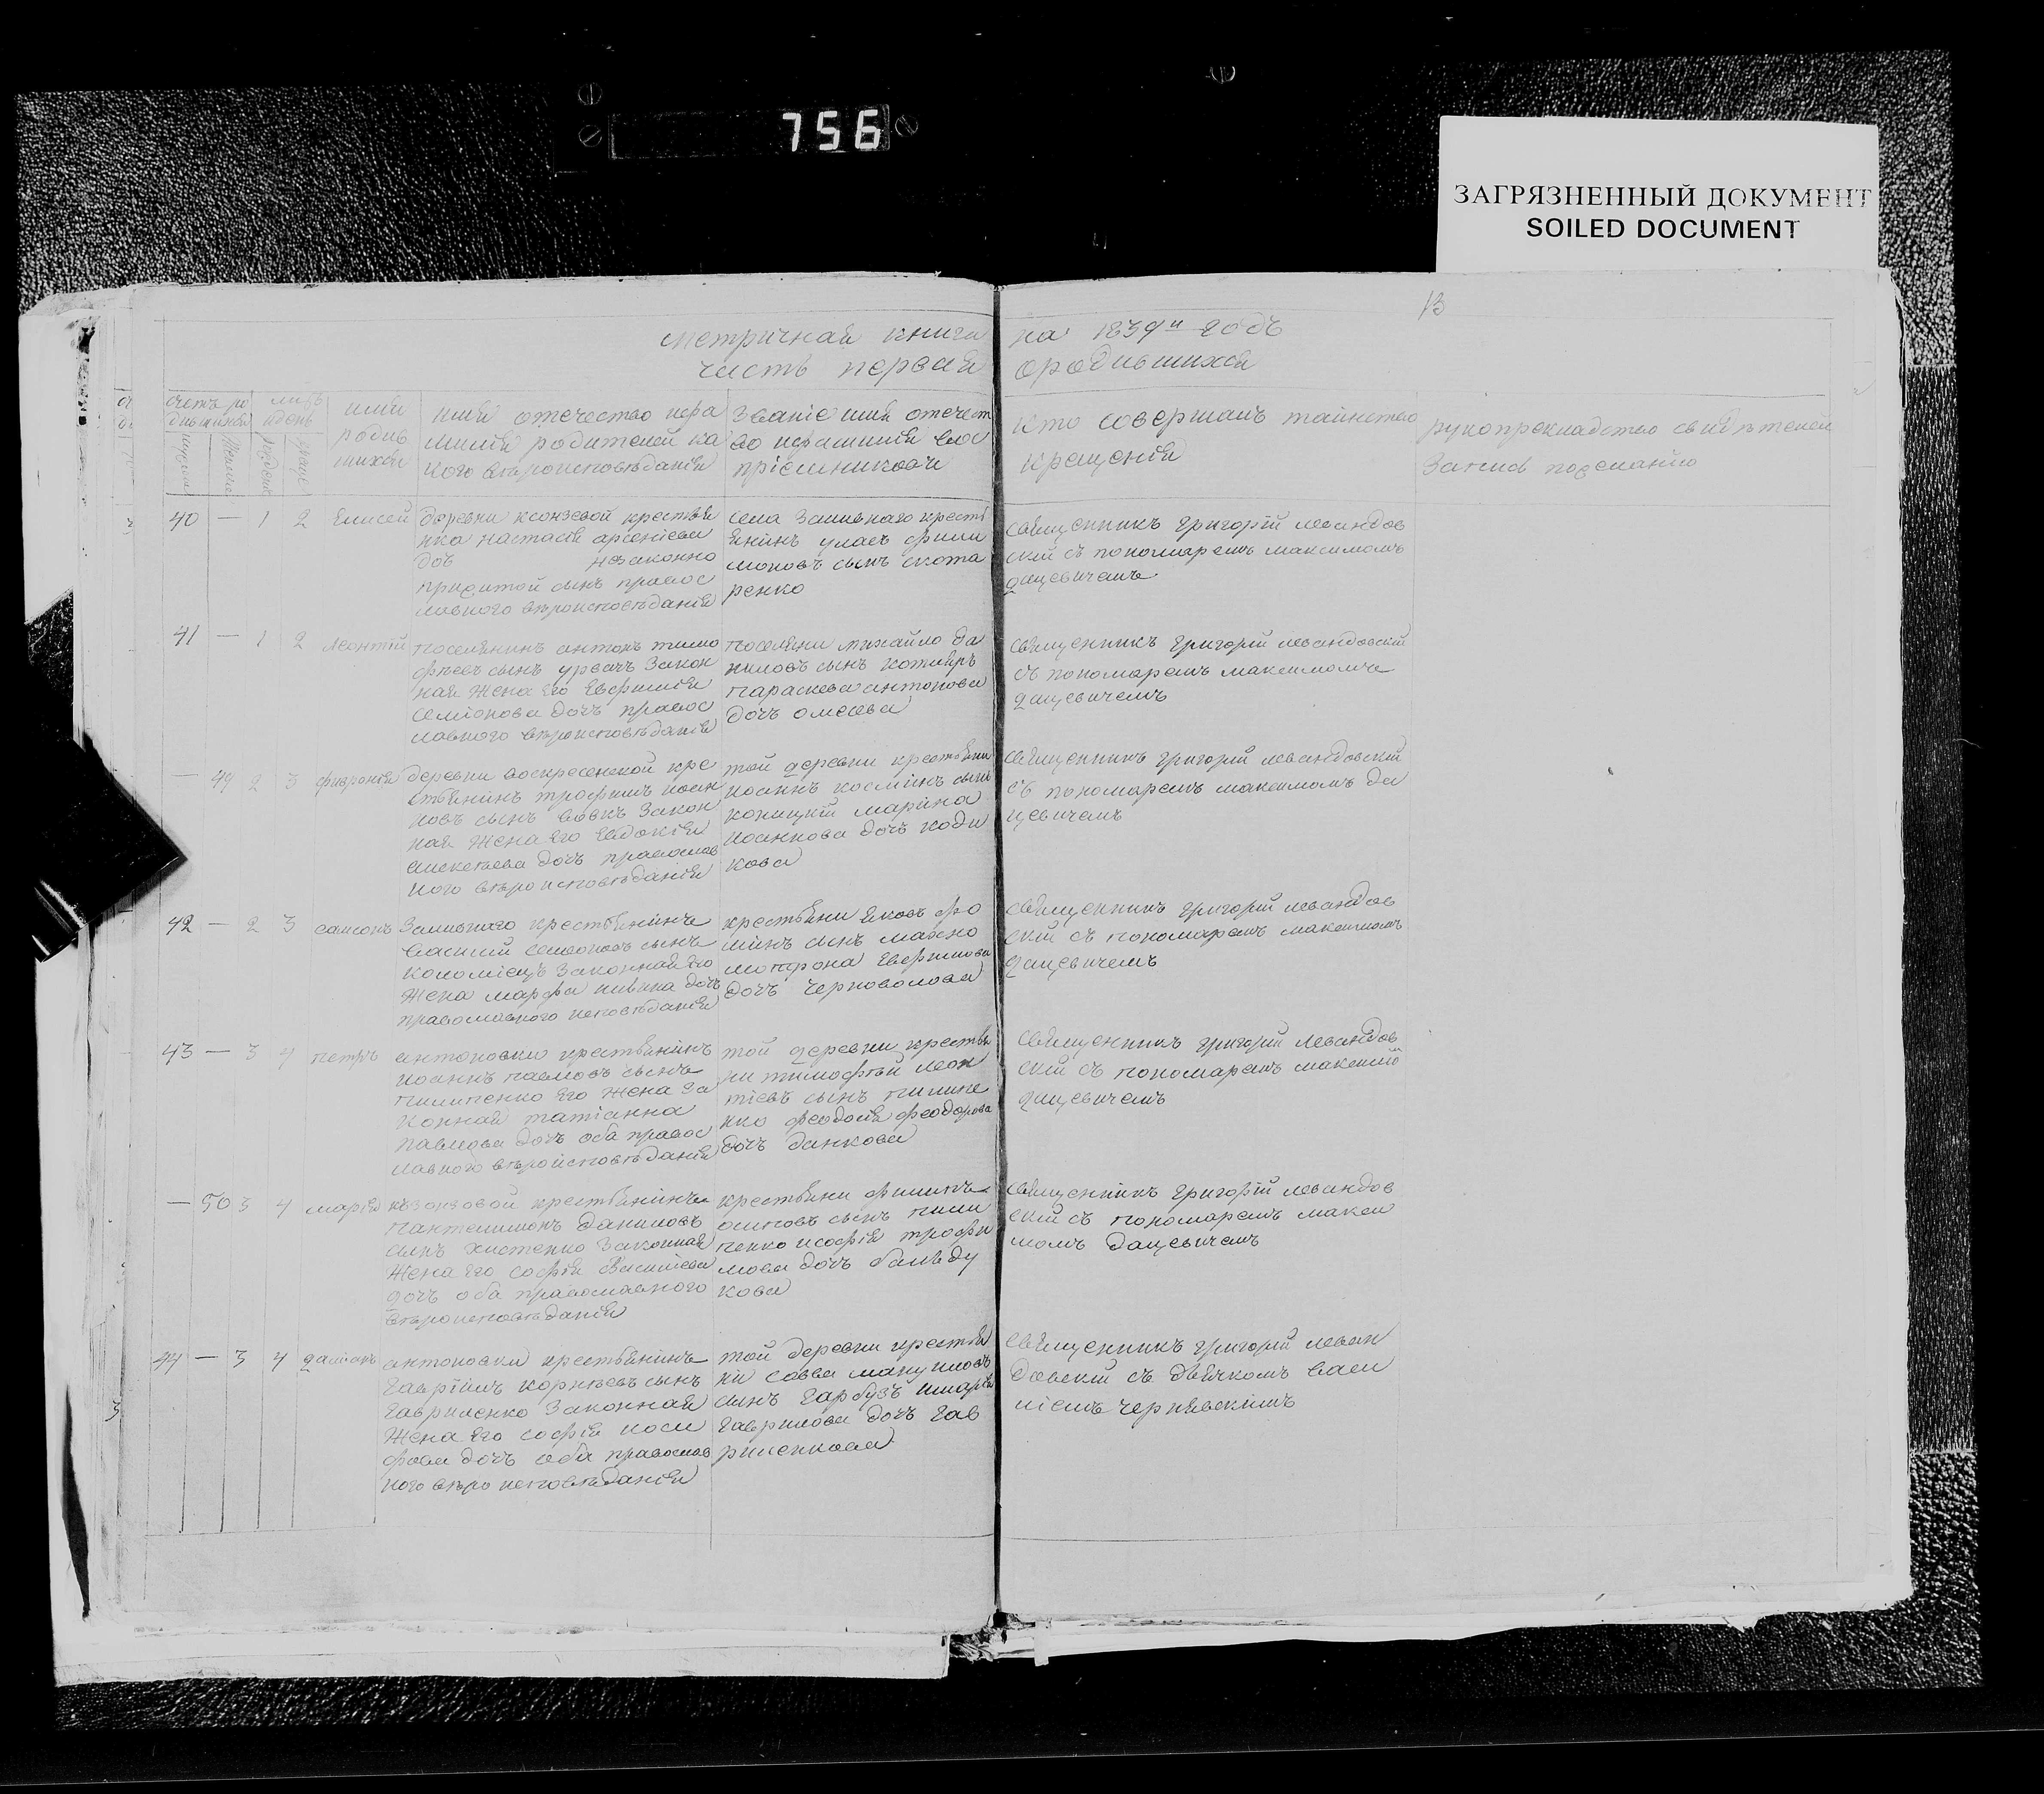 756
ЗАГРЯЗНЕННЫЙ ДОКУМЕНТ
SOILED DOCUMENT
13
метричная книга на 1839й годъ
часть первая ородившихся
счетъ ро
дившихся
мужеска
женска
день
имя
родив
шихся
имя отечество ифа
милия родителей ка
кого вѣроисповѣдания
Званіе имя отечест
во ифамилия вос
пріемниковъ
кто совершалъ таинство
крещения
рукоприкладство свидѣтелей
записи по желанию
40 — 1 2 Елисей
деревни ксонзевой крестья
нка настасия арсениева
доч незаконно
прижитой сынъ правос
лавного вѣроисповѣдания
села Заливного кресть
янинъ улас фили
моновъ сынъ скота
ренко
священникъ григорій левандов
скій съ пономаремъ максимомъ
дацевичемъ
41 — 1 2 леонтій
поселянинъ антонъ тимо
фѣевъ сынъ урвачъ закон
ная жена его Евфимия
семіонова дочъ правос
лавного вѣроисповѣдания
поселяни михайло да
ниловъ сынъ котляръ
параскева антонова
дочъ
священникъ григорій левандовскій
съ пономаремъ максимомъ
дацевичемъ
— 49 2 3 фиврония
деревни воскресенской кре
стьянинъ трофимъ иоан
новъ сынъ вовкъ закон
ная жена его Евдокия
алексѣева дочъ православ
ного вѣроисповѣдания
той деревни крестьяни
иоаннъ косминъ сынъ
марина
иоаннова дочъ
кова
священникъ григорій левандовскій
съ пономаремъ максимомъ да
цевичемъ
42 — 2 3 самсонъ
Заливного крестьянинъ
василий семионовъ сынъ
коломіецъ законная его
жена марфа дочъ
православного исповѣдания
крестьяни яковъ фо
минъ сынъ махно
мотрона Евфимова
дочъ черноволова
священникъ григорій левандов
скій съ пономаремъ максимомъ
дацевичемъ
43 — 3 4 петръ
антоновки крестьянинъ
иоаннъ павловъ сынъ
пилипенко его жена за
конная татіанна
павлова дочъ оба правос
лавного вѣроисповѣдания
той деревни крестья
ни тимофѣй леон
тіевъ сынъ пилипе
нко феодосия феодорова
дочъ данкова
священникъ григорій левандов
скій съ пономаремъ максимо
дацевичемъ
— 50 3 4 мария
къзонзовой крестьянинъ
пантелимонъ даниловъ
сынъ хистенко законная
жена его софия василиева
дочъ оба православного
вѣроисповѣдания
крестьяни филипъ
осиповъ сынъ пили
пенко исофия трофи
мова дочъ балъду
кова
священникъ григорій левандов
скій съ пономаремъ макси
момъ дацевичемъ
44 — 3 4 даміанъ
антоновки крестьянинъ
гавріилъ корнѣевъ сынъ
гавриленко законная
жена его софия иоси
фова дочъ оба православ
ного вѣро исповѣдания
той деревни крестья
ни савва мануиловъ
сынъ гарбузъ имария
гаврилова дочъ гав
риленкова
священникъ григорій леван
довскій съ дьячкомъ васи
ліемъ чернявскимъ